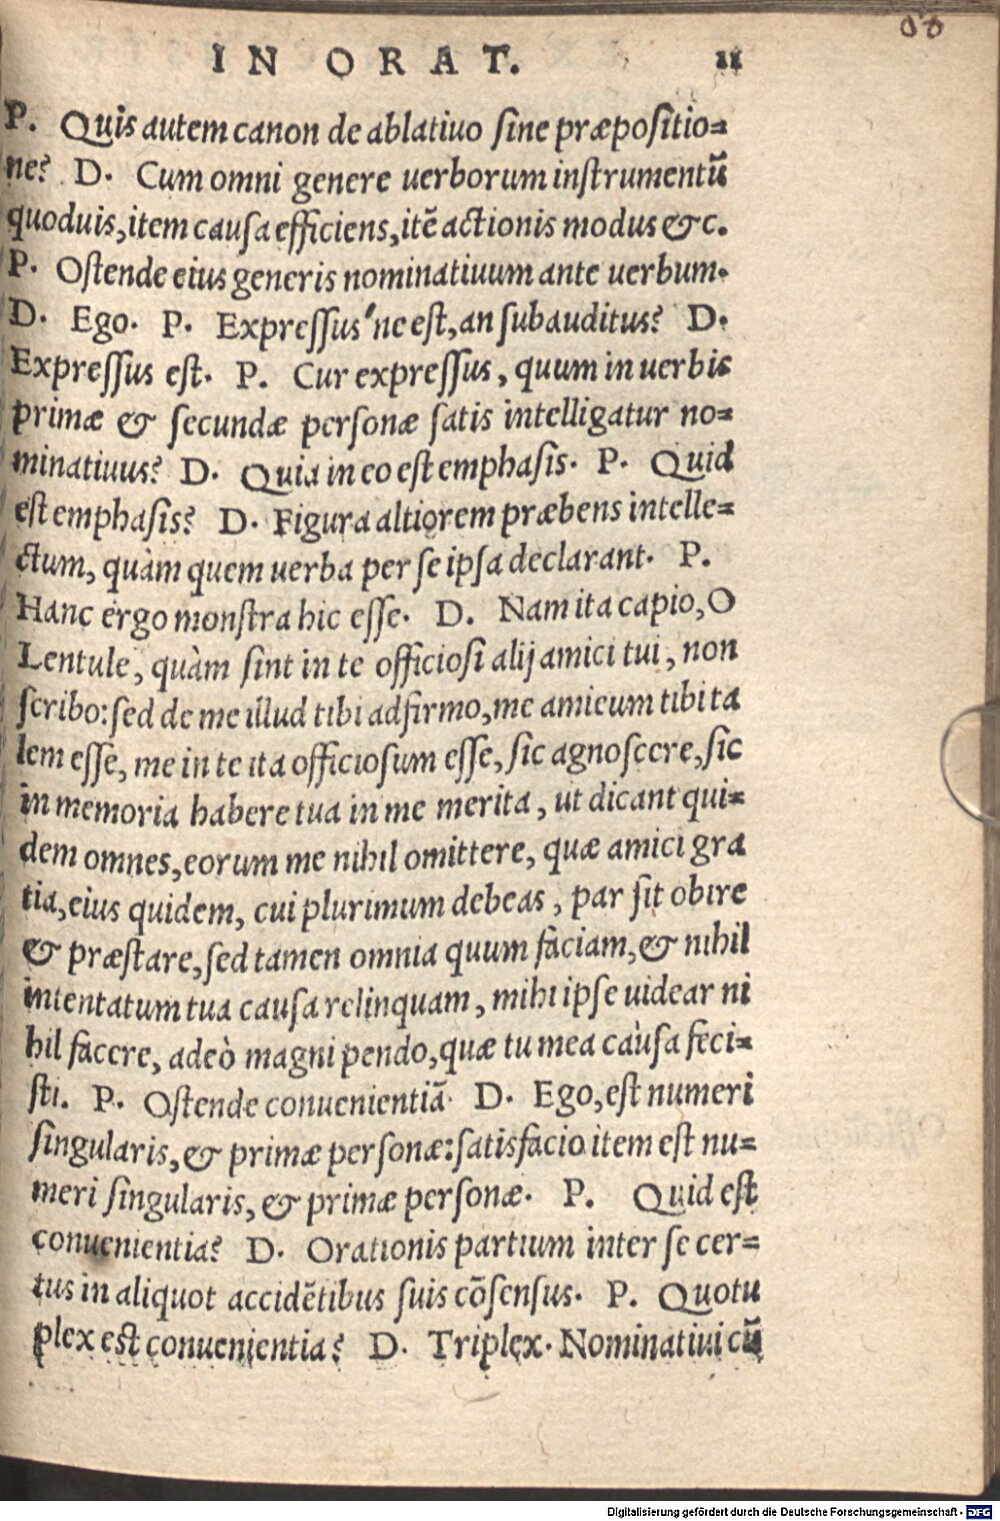 IN ORAT. 11
P. Quis autem canon de ablatiuo ſine præpoſitio=
ne? D. Cum omni genere uerborum inſtrumentū
quoduis, item cauſa efficiens, itē actionis modus &c.
P. Oſtende eius generis nominatiuum ante uerbum.
D. Ego. P. Expreſſus'ne eſt, an ſubauditus? D.
Expreſſus eſt. P. Cur expreſſus, quum in uerbis
primæ & ſecundæ perſonæ ſatis intelligatur no=
minatiuus? D. Quia in eo eſt emphaſis. P. Quid
eſt emphaſis? D. Figura altiorem præbens intelle=
ctum, quàm quem uerba per ſe ipſa declarant. P.
Hanc ergo monſtra hic eſſe. D. Nam ita capio, O
Lentule, quàm ſint in te officioſi alij amici tui, non
ſcribo: ſed de me illud tibi adfirmo, me amicum tibi ta
lem eſſe, me in te ita officioſum eſſe, ſic agnoſcere, ſic
in memoria habere tua in me merita, ut dicant qui=
dem omnes, eorum me nihil omittere, quæ amici gra
tia, eius quidem, cui plurimum debeas, par ſit obire
& præſtare, ſed tamen omnia quum faciam, & nihil
intentatum tua cauſa relinquam, mihi ipſe uidear ni
hil facere, adeò magni pendo, quæ tu mea cauſa feci=
ſti. P. Oſtende conuenientiā. D. Ego, eſt numeri
ſingularis, & primæ perſonæ: ſatisfacio item eſt nu=
meri ſingularis, & primæ perſonæ. P. Quid eſt
conuenientia? D. Orationis partium inter ſe cer=
tus in aliquot accidētibus ſuis cōſenſus. P. Quotu
plex eſt conuenientia? D. Triplex. Nominatiui cū
Digitalisierung gefördert durch die Deutsche Forschungsgemeinschaft - DFG